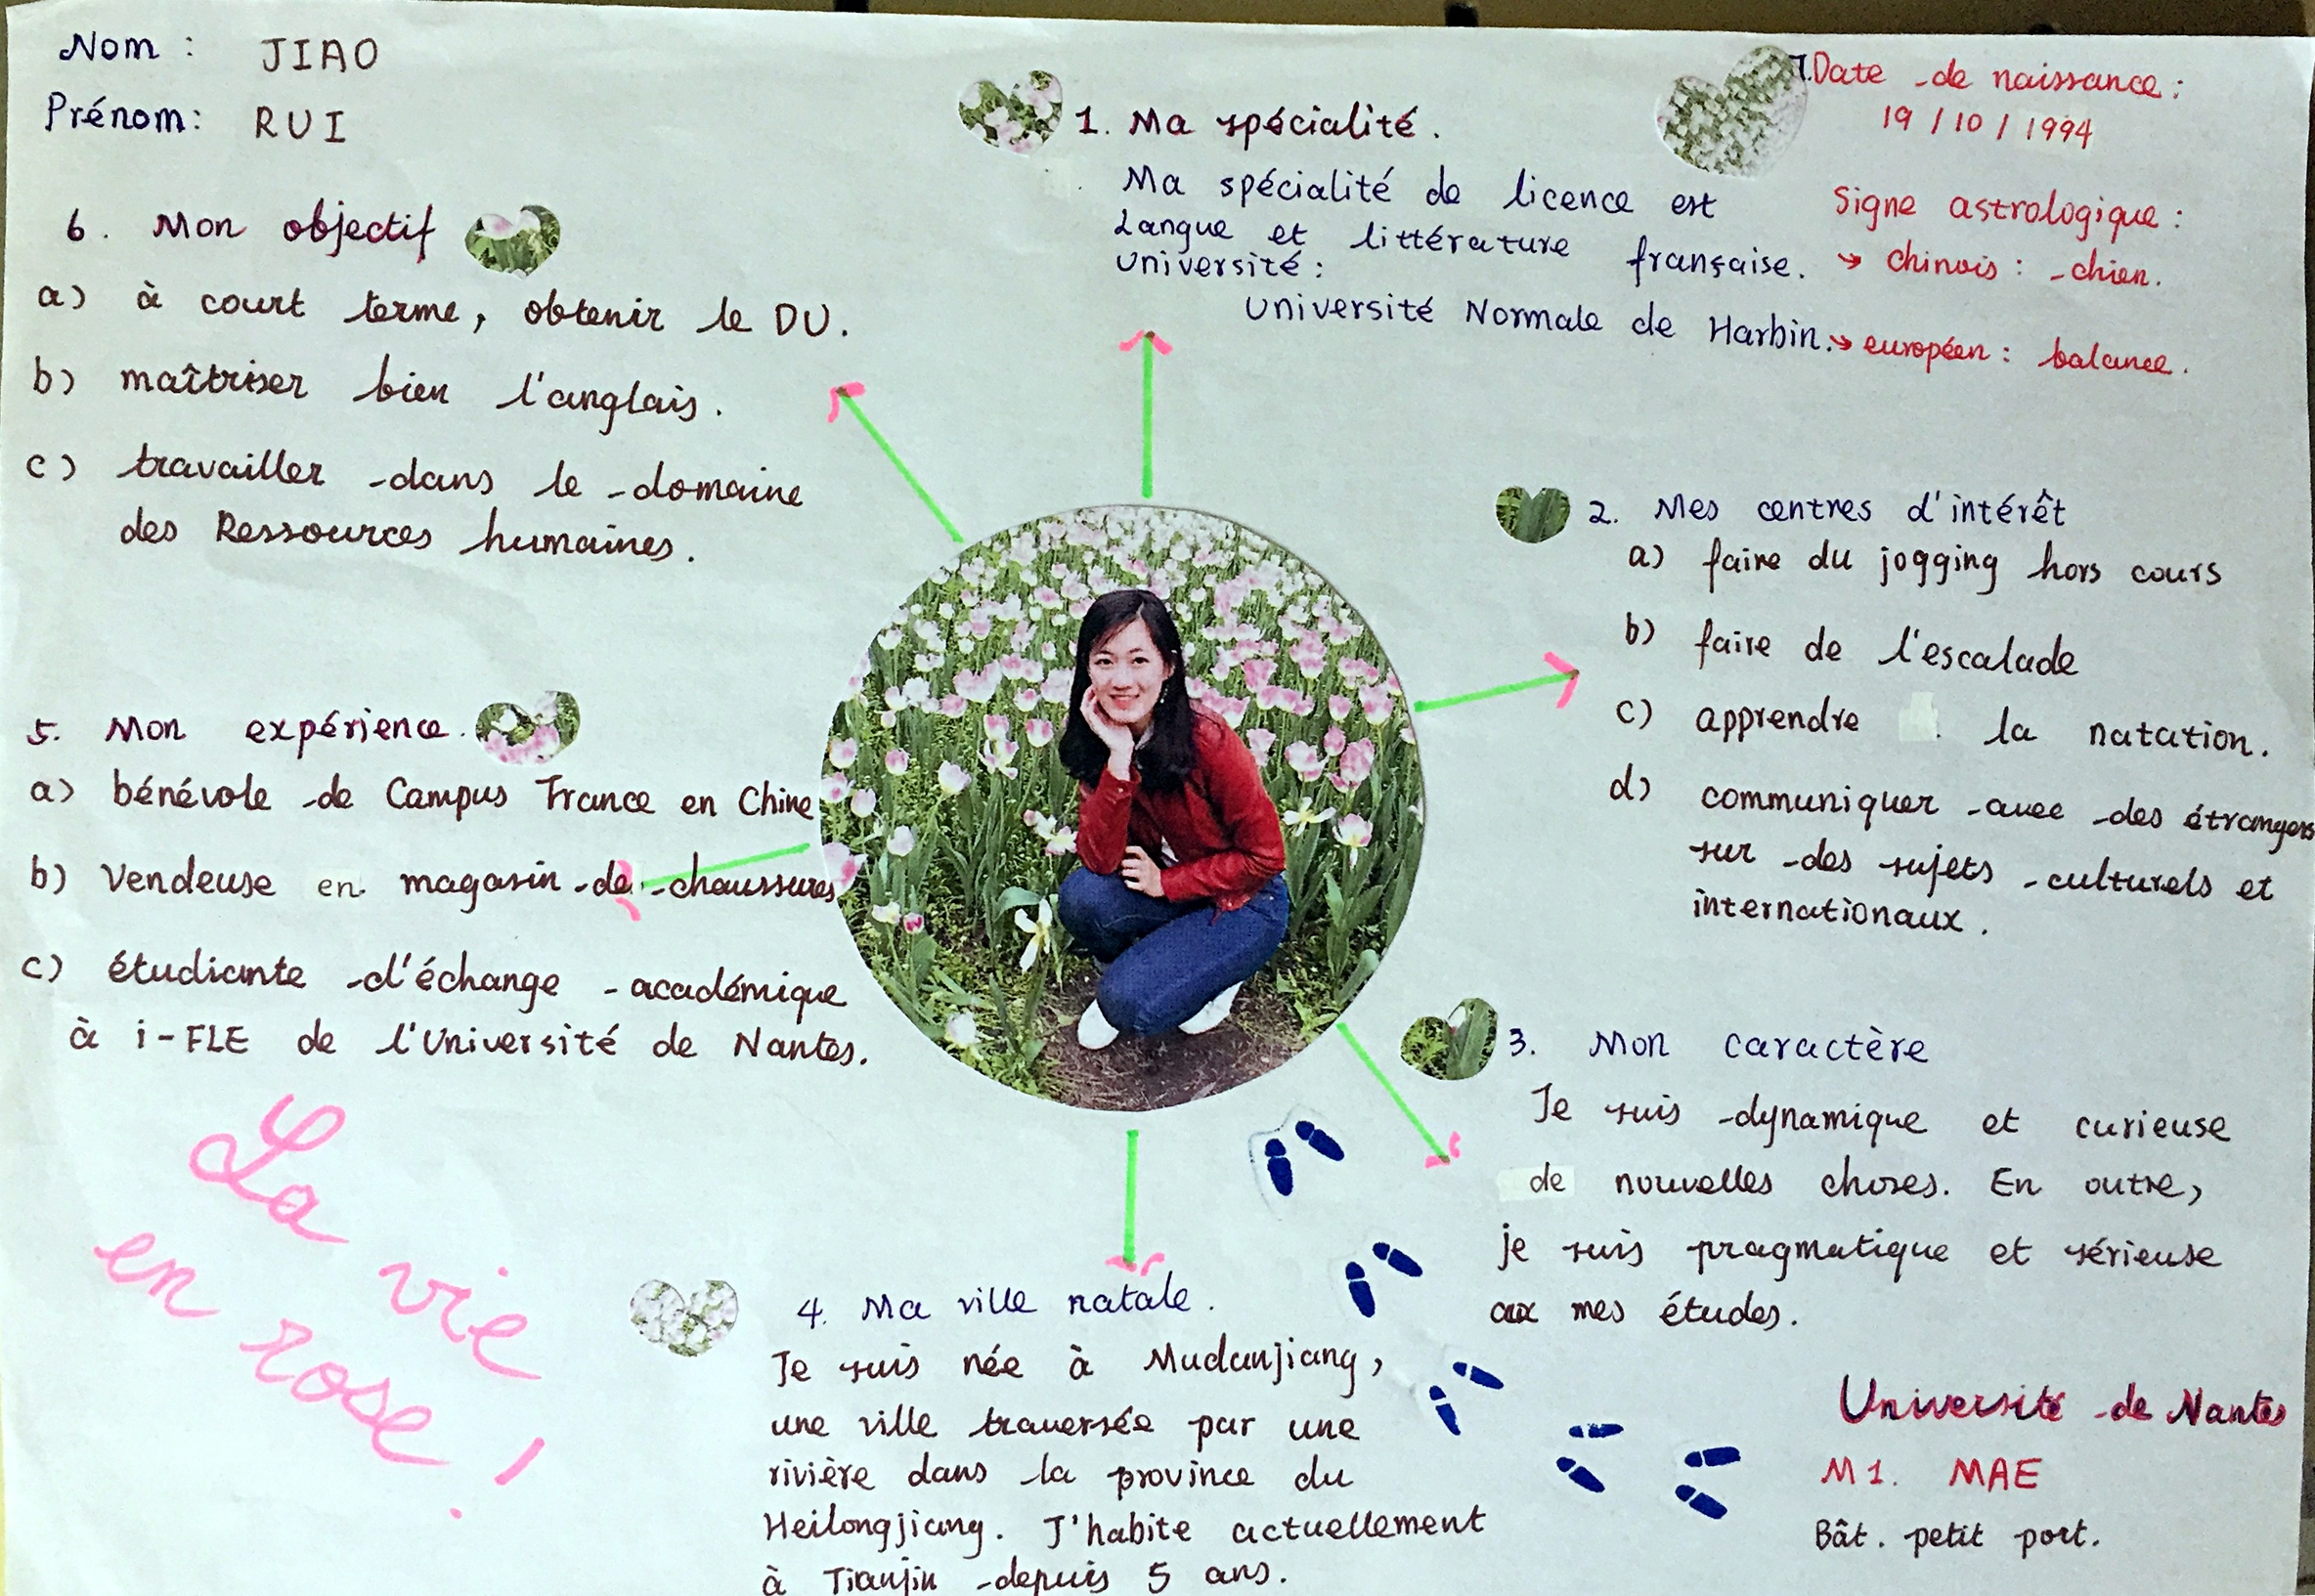 Nom : JIAO
Prénom: RUI
1. Ma spécialité.
Ma spécialité de licence est
Langue et littérature française.
Université:
Université Normale de Harbin.
7.Date de naissance:
19/10/1994
Signe astrologique:
→ chinois: chien.
→ européen: balance.
2. Mes centres d'intérêt
a) faire du jogging hors cours
b) faire de l'escalade
c) apprendre la natation.
d) communiquer avec des étrangers
sur des sujets culturels et
internationaux.
3. Mon caractère
Je suis dynamique et curieuse
de nouvelles choses. En outre,
je suis pragmatique et sérieuse
aux mes études.
4. Ma ville natale.
Je suis née à Mudanjiang,
une ville traversée par une
rivière dans la province du
Heilongjiang. J'habite actuellement
à Tianjin depuis 5 ans.
5. Mon expérience.
a) bénévole de Campus France en Chine
b) Vendeuse en magasin de chaussures
c) étudiante d'échange académique
à i-FLE de l'Université de Nantes.
6. Mon objectif
a) à court terme, obtenir le DU.
b) maîtriser bien l'anglais.
c) travailler dans le domaine
des Ressources humaines.
La vie
en rose!
Université de Nantes
M1. MAE
Bât. petit port.